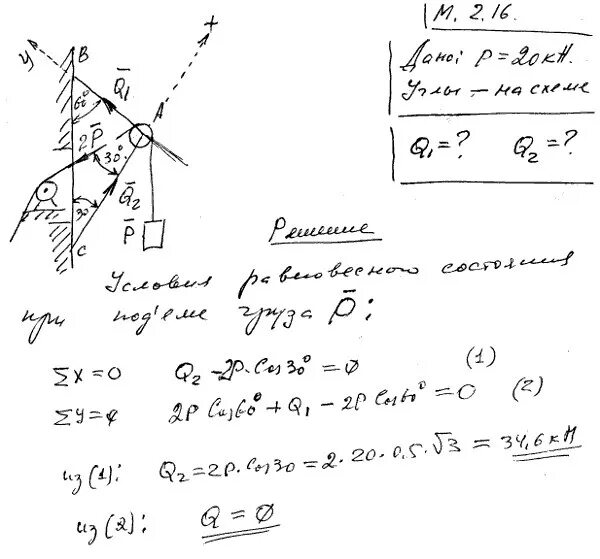 М. 2.16.
Дано: P = 20кН.
Углы – на схеме
Q₁ = ? Q₂ = ?
y
B
x
60°
Q̄₁
A
2P̄
30°
Q̄₂
30
P̄
C
Решение
Условия равновесного состояния
при под'еме груза P̄:
ΣX = 0 Q₂ – 2P·Cos30° = 0 (1)
ΣY = 0 2P Cos60° + Q₁ – 2P Cos60° = 0 (2)
из (1): Q₂ = 2P·Cos30 = 2·20·0.5·√3 = 34,6 кН
из (2): Q = 0